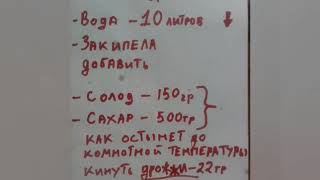 - Вода - 10 литров
- Закипела
добавить
- Солод - 150гр
- Сахар - 500гр
как остынет до
комнотной температуры
кинуть дрожжи - 22гр